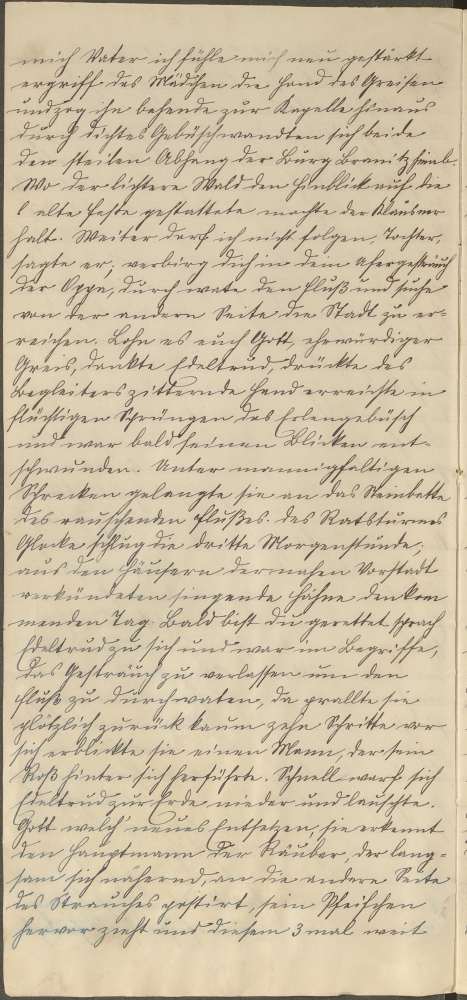 mich Vater ich fühle mich neu gestärkt
ergriff das Mädchen die Hand des Greisen
und zog ihn behende zur Kapelle hinaus
durch dichtes Gebüsch wandten sich beide
den steilen Abhang der Burg Branitz hinab.
Wo der lichtere Wald den Hinblick auf die
alte Feste gestattete machte der Klausner
halt. Weiter darf ich nicht folgen, Tochter,
sagte er, verbirg dich in dem Ufergesträuch
der Oppa, durchwate den Fluß und suche
von der andern Seite die Stadt zu er-
reichen. Lohn es euch Gott, ehrwürdiger
Greis, dankte Edeltrud, drückte des
Begleiters zitternde Hand erreichte in
flüchtigen Sprüngen das Erlengebüsch
und war bald seinen Blicken ent-
schwunden. Unter mannigfaltigen
Schrecken gelangte sie an das Steinbette
des rauschenden Flußes. Des Ratsturmes
Glocke schlug die dritte Morgenstunde;
aus den Häusern der nahen Vorstadt
verkündeten singende Hähne den kom
menden Tag. Bald bist du gerettet sprach
Edeltrud zu sich und war im Begriffe,
das Gesträuch zu verlassen um den
Fluß zu durchwaten, da prallte sie
plötzlich zurück kaum zehn Schritte vor
sich erblickte sie einen Mann, der sein
Roß hinter sich herführte. Schnell warf sich
Edeltrud zur Erde nieder und lauschte.
Gott welch' neues Entsetzen, sie erkennt
den Hauptmann der Räuber, der lang-
sam sich nähernd, an die andere Seite
des Strauches gestirt, sein Pfeifchen
hervor zieht und diesem 3 mal weit